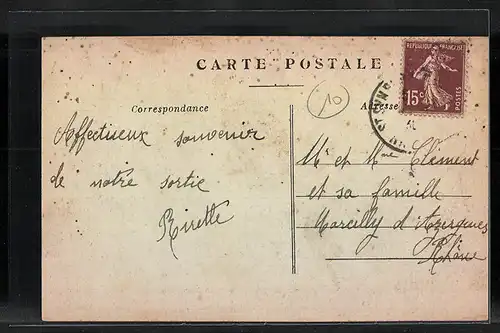 CARTE POSTALE
REPUBLIQUE FRANÇAISE
15c
POSTES
10
Correspondance
Adresse
Affectueux souvenir
de notre sortie
Mr et Mme Clément
et sa famille
Marcilly d'Azergues
Rhône